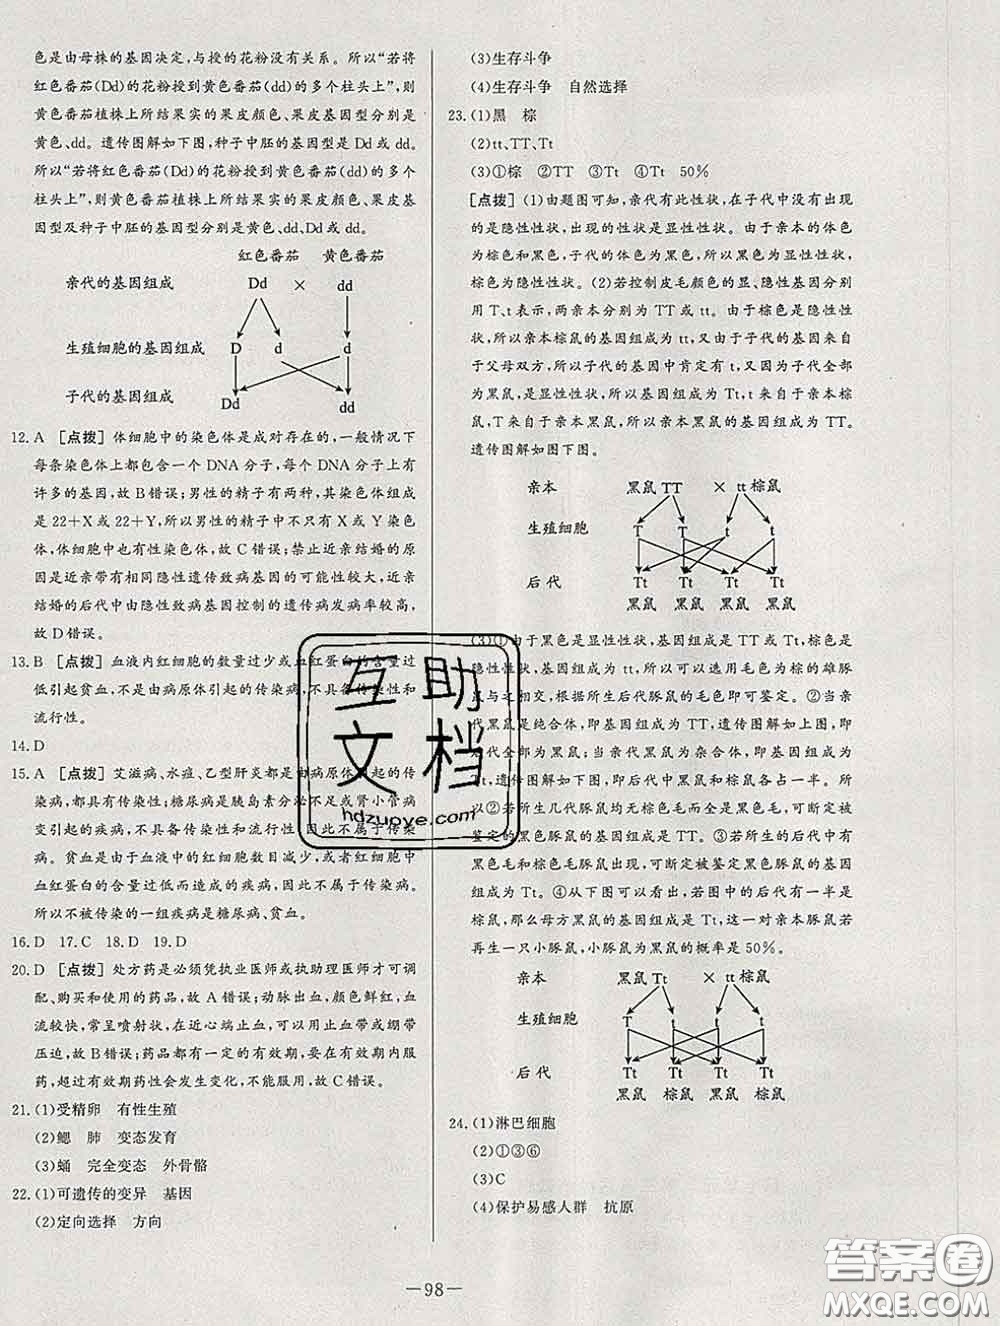 色是由母株的基因决定,与授的花粉没有关系。所以“若将
红色番茄(Dd)的花粉授到黄色番茄(dd)的多个柱头上”,则
黄色番茄植株上所结果实的果皮颜色、果皮基因型分别是
黄色、dd。遗传图解如下图,种子中胚的基因型是Dd或dd。
所以“若将红色番茄(Dd)的花粉授到黄色番茄(dd)的多个
柱头上”,则黄色番茄植株上所结果实的果皮颜色、果皮基
因型及种子中胚的基因型分别是黄色、dd、Dd或dd。
红色番茄 黄色番茄
亲代的基因组成 Dd × dd
生殖细胞的基因组成 D d d
子代的基因组成 Dd dd
12. A [点拨] 体细胞中的染色体是成对存在的,一般情况下
每条染色体上都包含一个DNA分子,每个DNA分子上有
许多的基因,故B错误;男性的精子有两种,其染色体组成
是22+X或22+Y,所以男性的精子中不只有X或Y染色
体,体细胞中也有性染色体,故C错误;禁止近亲结婚的原
因是近亲带有相同隐性遗传致病基因的可能性较大,近亲
结婚的后代中由隐性致病基因控制的遗传病发病率较高,
故D错误。
13. B [点拨] 血液内红细胞的数量过少或血红蛋白的含量过
低引起贫血,不是由病原体引起的传染病,不具备传染性和
流行性。
14. D
15. A [点拨] 艾滋病、水痘、乙型肝炎都是由病原体引起的传
染病,都具有传染性;糖尿病是胰岛素分泌不足或肾小管病
变引起的疾病,不具备传染性和流行性,因此不属于传染
病。贫血是由于血液中的红细胞数目减少,或者红细胞中
血红蛋白的含量过低而造成的疾病,因此不属于传染病。
所以不被传染的一组疾病是糖尿病、贫血。
16. D 17. C 18. D 19. D
20. D [点拨] 处方药是必须凭执业医师或执助理医师才可调
配、购买和使用的药品,故A错误;动脉出血,颜色鲜红,血
流较快,常呈喷射状,在近心端止血,可以用止血带或绷带
压迫,故B错误;药品都有一定的有效期,要在有效期内服
药,超过有效期药性会发生变化,不能服用,故C错误。
21. (1)受精卵 有性生殖
(2)鳃 肺 变态发育
(3)蛹 完全变态 外骨骼
22. (1)可遗传的变异 基因
(2)定向选择 方向
(3)生存斗争
(4)生存斗争 自然选择
23. (1)黑 棕
(2)tt、TT、Tt
(3)①棕 ②TT ③Tt ④Tt 50%
[点拨] (1)由题图可知,亲代有此性状,在子代中没有出现
的是隐性性状,出现的性状是显性性状。由于亲本的体色
为棕色和黑色,子代的体色为黑色,所以黑色为显性性状,
棕色为隐性性状。(2)若控制皮毛颜色的显、隐性基因分别
用T、t表示,两亲本分别为TT或tt。由于棕色是隐性性
状,所以亲本棕鼠的基因组成为tt,又由于子代的基因来自
于父母双方,所以子代的基因中肯定有t,又因为子代全部
为黑鼠,是显性性状,所以子代的基因组成为Tt,t来自于亲本棕
鼠,T来自于亲本黑鼠,所以亲本黑鼠的基因组成为TT。
遗传图解如图下图。
亲本 黑鼠TT × tt棕鼠
生殖细胞 T T t t
后代 Tt Tt Tt Tt
黑鼠 黑鼠 黑鼠 黑鼠
(3)①由于黑色是显性性状,基因组成是TT或Tt,棕鼠是
隐性性状,基因组成为tt,所以可以选用毛色为棕的雄豚
鼠与之相交,根据所生后代豚鼠的毛色即可鉴定。②当亲
代黑鼠是纯合体,即基因组成为TT,遗传图解如上图,即
后代全部为黑鼠;当亲代黑鼠为杂合体,即基因组成为
Tt,遗传图解如下图,即后代中黑鼠和棕鼠各占一半。所
以②若所生几代豚鼠均无棕色毛而全是黑色毛,可断定被
鉴定的黑色豚鼠的基因组成是TT。③若所生的后代中,
黑色毛和棕色毛豚鼠出现,可断定被鉴定黑色豚鼠的基因
组成为Tt。④从下图可以看出,若图中的后代有一半是
棕鼠,那么母方黑鼠的基因组成是Tt,这一对亲本豚鼠若
再生一只小豚鼠,小豚鼠为黑鼠的概率是50%。
亲本 黑鼠Tt × tt棕鼠
生殖细胞 T t t t
后代 Tt Tt Tt Tt
黑鼠 棕鼠 黑鼠 棕鼠
24. (1)淋巴细胞
(2)①③⑥
(3)C
(4)保护易感人群 抗原
互助
文档
hdzuoye.com
—98—
答案圈
MXQE.COM